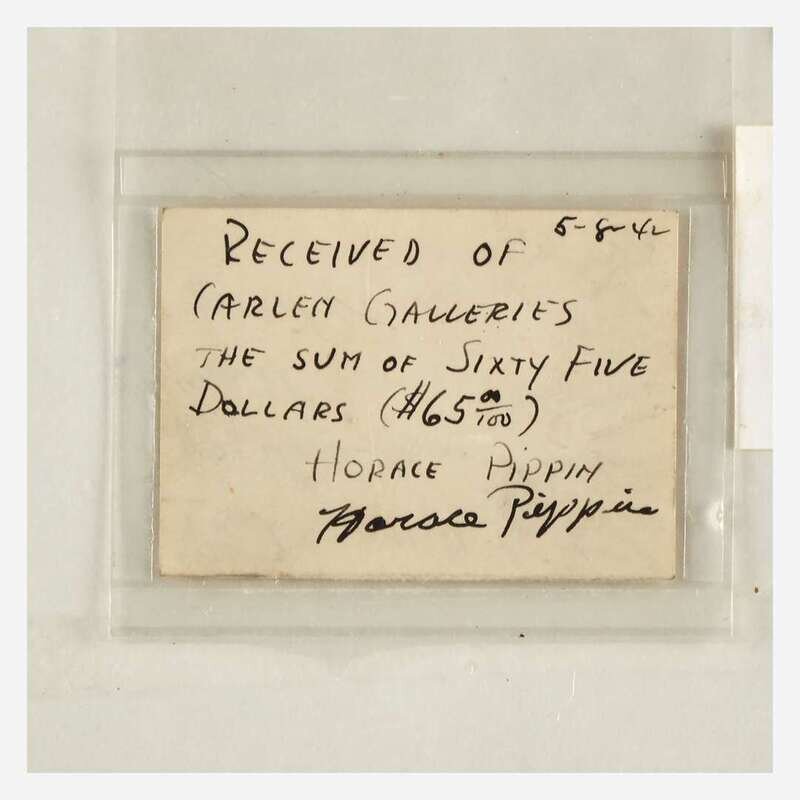 5-8-42
RECEIVED OF
CARLEN GALLERIES
THE SUM OF SIXTY FIVE
DOLLARS ($65 00/100)
HORACE PIPPIN
Horace Pippin